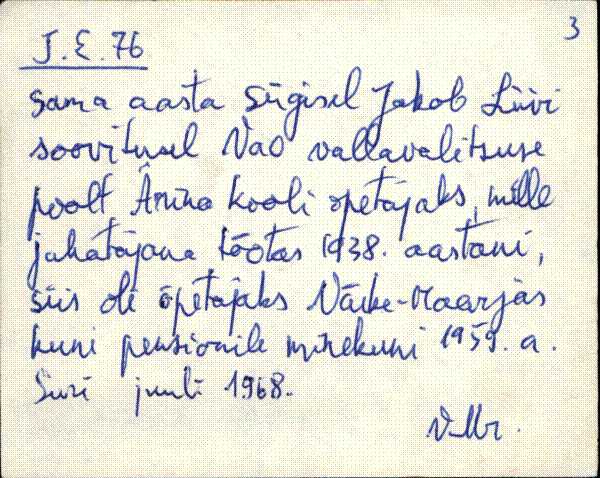 3
J.E. 76
sama aasta sügisel Jakob Liivi
soovitusel Vao vallavalitsuse
poolt Ärina kooli õpetajaks, mille
juhatajana töötas 1938. aastani,
siis oli õpetajaks Väike-Maarjas
kuni pensionile minekuni 1959. a.
Suri juuli 1968.